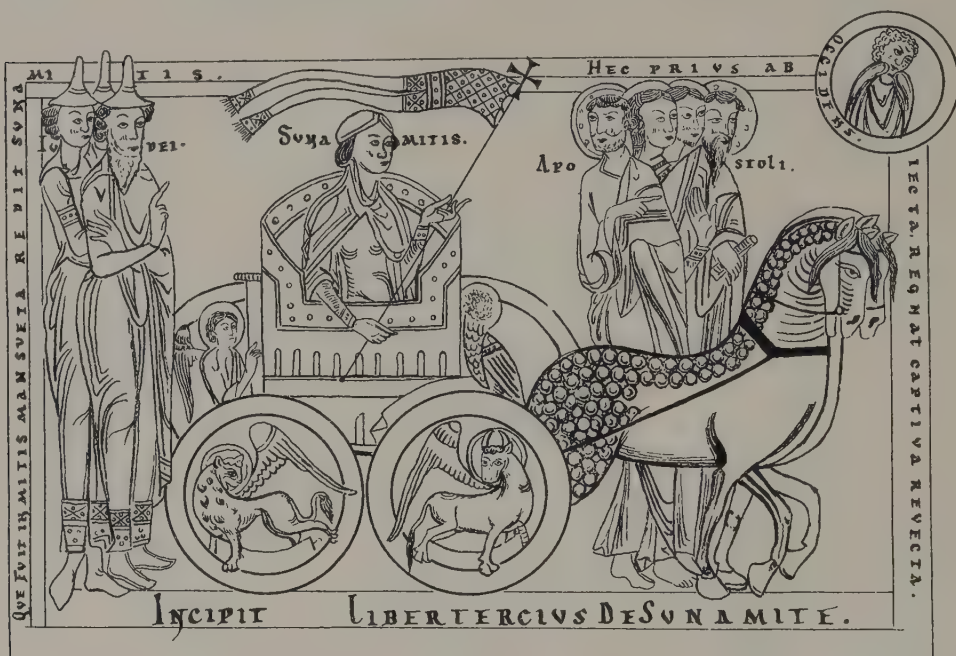 QVE FVIT INMITIS MANSVETA REDIT SVNA
MITIS.
HEC PRIVS AB
IECTA. REGNAT CAPTIVA REVECTA.
OCCIDENS.
DEI.
SUNAMITIS.
APOSTOLI.
INCIPIT LIBER TERCIVS DE SUNAMITE.